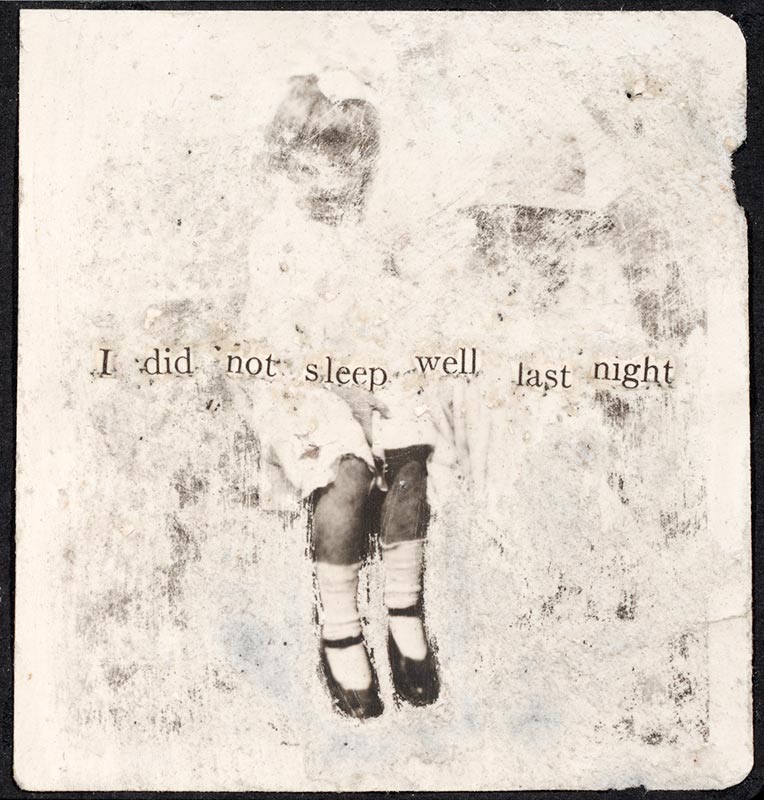 I did not sleep well last night